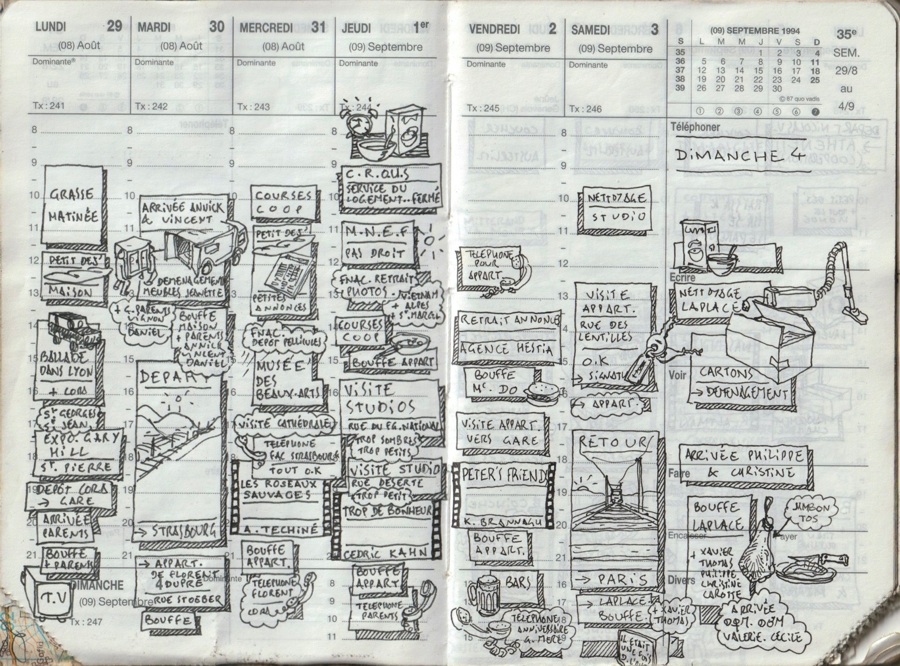 LUNDI 29
(08) Août
Dominante
Tx : 241
8
9
GRASSE
MATINÉE
PETIT DEJ'
MAISON
BALLADE
DANS LYON
+ CORA
St GEORGES
St JEAN
EXPO. GARY
HILL
St. PIERRE
DEPOT CORA
→ GARE
ARRIVÉE
PARENTS
BOUFFE
+ PARENTS
T.V
DIMANCHE
(09) Septembre
Tx : 247
MARDI 30
(08) Août
Dominante
Tx : 242
ARRIVÉE ANNICK
& VINCENT
DEMENAGEMENT
MEUBLES JEANETTE
+ G. PARENTS
VIGNON
DANIEL
BOUFFE
MAISON
+ PARENTS
ANNICK
VINCENT
DANIEL
DEPART
→ STRASBOURG
→ APPART.
DE FLORENT
4 DUPRE
RUE STOEBER
BOUFFE
MERCREDI 31
(08) Août
Dominante
Tx : 243
COURSES
COOP
PETIT DEJ'
PETITES
ANNONCES
FNAC.
DEPOT PELLICULES
MUSÉE
DES
BEAUX-ARTS
VISITE CATHÉDRALE
TELEPHONE
FAC STRASBOURG
TOUT O.K
LES ROSEAUX
SAUVAGES
A. TECHINÉ
BOUFFE
APPART.
TELEPHONE
FLORENT
CORA
JEUDI 1er
(09) Septembre
Dominante
Tx : 244
C.R.O.U.S
SERVICE DU
LOGEMENT.. FERMÉ
M.N.E.F
PAS DROIT
FNAC. RETRAIT
PHOTOS
- VIETNAM
+ ALPES
+ St MARC
COURSES
COOP
BOUFFE APPART
VISITE
STUDIOS
RUE DU FG. NATIONAL
TROP SOMBRES
TROP PETITS
VISITE STUDIO
RUE DESERTE
TROP PETIT
TROP DE BONHEUR
CEDRIC KAHN
BOUFFE
APPART
TELEPHONE
PARENTS
VENDREDI 2
(09) Septembre
Dominante
Tx : 245
TELEPHONE
POUR
APPART.
RETRAIT ANNONCE
AGENCE HESTIA
BOUFFE
Mc. DO
VISITE APPART.
VERS GARE
PETER'S FRIEND
K. BRANNAGH
BOUFFE
APPART.
BARS
TELEPHONE
ANNIVERSAIRE
G. MERE
SAMEDI 3
(09) Septembre
Dominante
Tx : 246
NETTOYAGE
STUDIO
VISITE
APPART.
RUE DES
LENTILLES
O.K
→ SIGNATURE
→ APPART.
RETOUR
→ PARIS
→ LAPLACE
BOUFFE.
+ XAVIER
THOMAS
IL ETAIT
UNE FOIS
(09) SEPTEMBRE 1994
S L M M J V S D
35 1 2 3 4
36 5 6 7 8 9 10 11
37 12 13 14 15 16 17 18
38 19 20 21 22 23 24 25
39 26 27 28 29 30
© 87 quo vadis
35e
SEM.
29/8
au
4/9
Téléphoner
DIMANCHE 4
Ecrire
NETTOYAGE
LAPLACE
Voir
CARTONS
→ DEMENAGEMENT
Faire
ARRIVÉE PHILIPPE
& CHRISTINE
BOUFFE
LAPLACE
JAMBON
TOS
Encaisser
Payer
+ XAVIER
THOMAS
PHILIPPE
CHRISTINE
CAROTTE
Divers
ARRIVÉE
VALERIE. CECILE